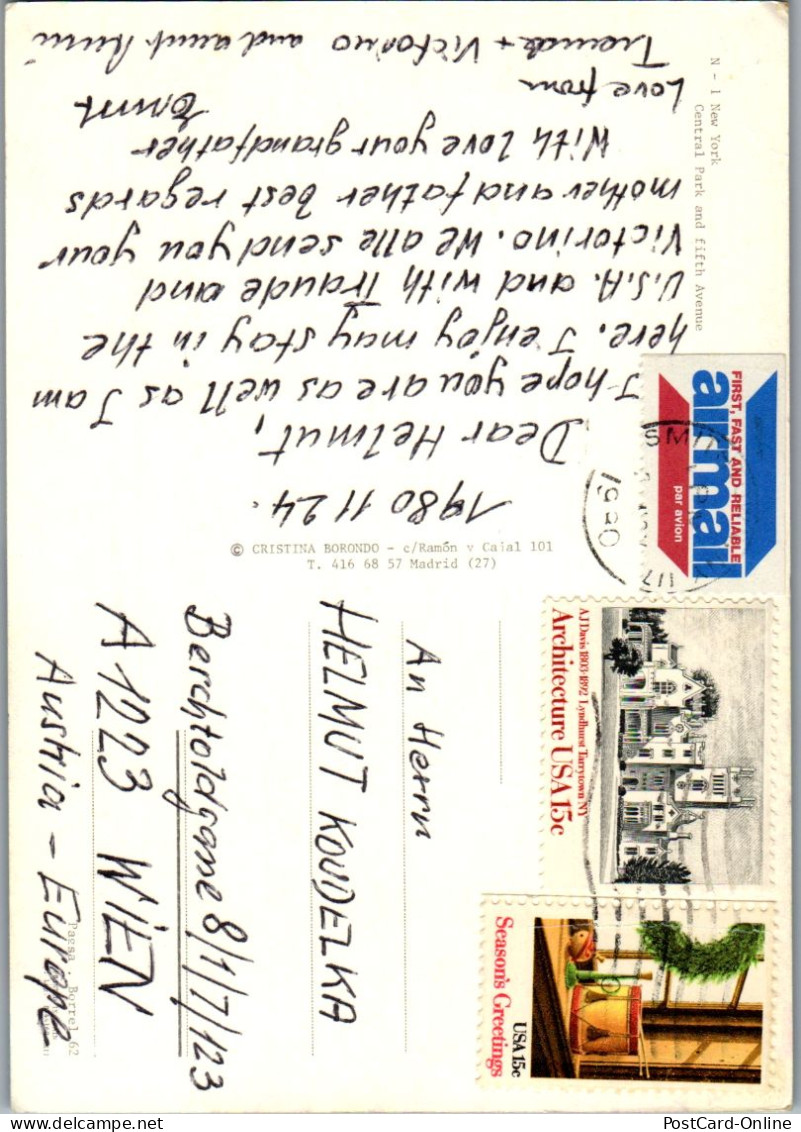 N - 1 New York
Central Park and fifth Avenue
1980 11 24.
Dear Helmut,
I hope you are as well as I am
here. I enjoy may stay in the
U.S.A. and with Traude and
Victorino. We alle send you your
mother and father best regards
With love your grandfather
Love from
Traude + Victorino and aunt
© CRISTINA BORONDO - c/Ramón y Cajal 101
T. 416 68 57 Madrid (27)
FIRST, FAST AND RELIABLE
airmail
par avion
1980
AJ Davis 1803-1892 Lyndhurst Tarrytown NY
Architecture USA 15c
Season's Greetings
USA 15c
An Herrn
HELMUT KOUDELKA
Berchtoldgasse 8/1/7/123
A 1223 WIEN
Austria - Europe
Pacsa . Borrel 62
www.delcampe.net
PostCard-Online